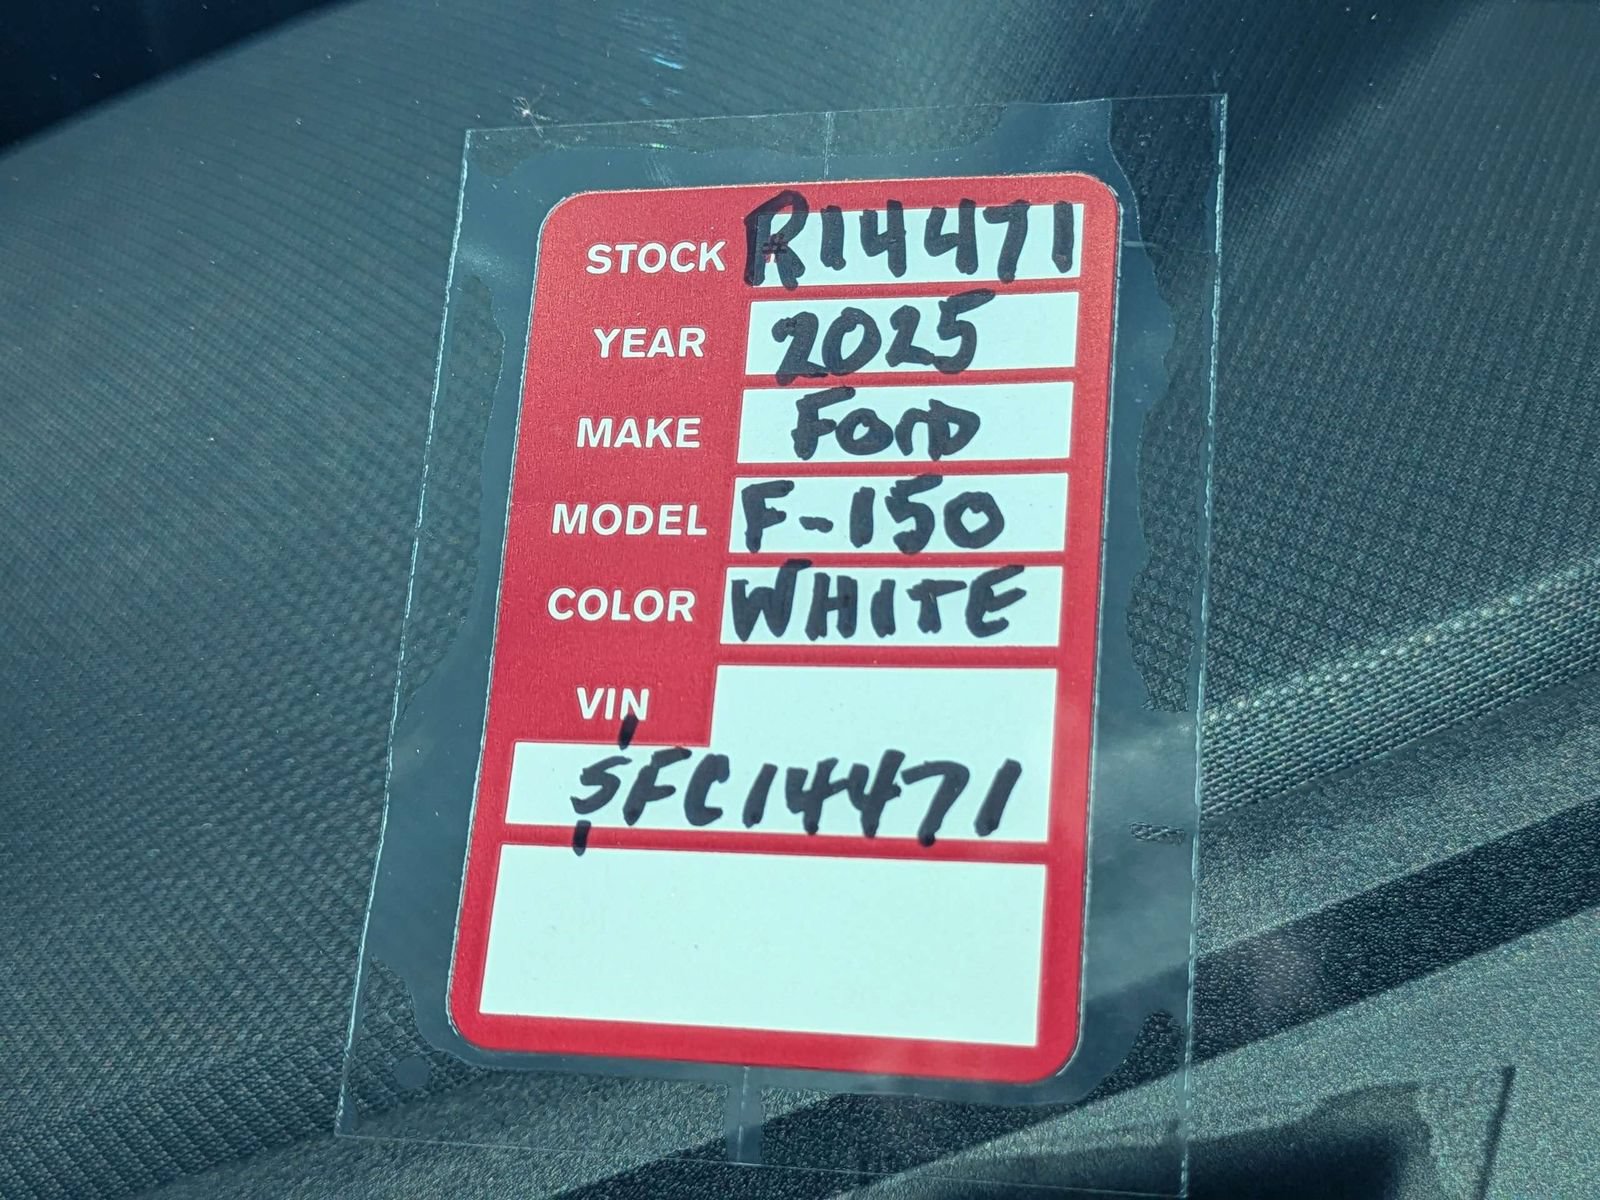 STOCK # R14471
YEAR 2025
MAKE Ford
MODEL F-150
COLOR WHITE
VIN
SFC14471